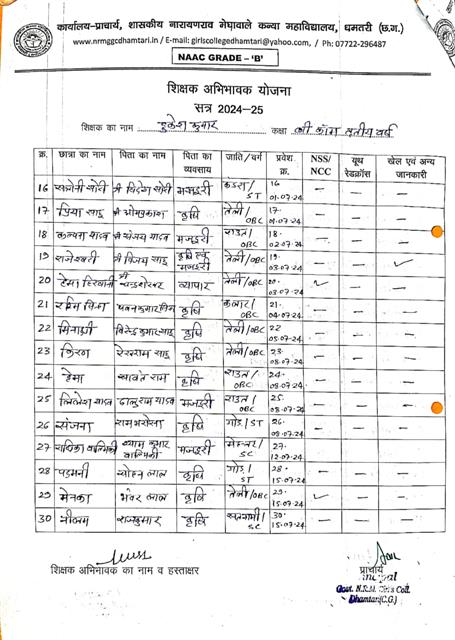 कार्यालय–प्राचार्य, शासकीय नारायणराव मेघावाले कन्या महाविद्यालय, धमतरी (छ.ग.)
www.nrmggcdhamtari.in / E-mail: giriscollegedhamtari@yahoo.com, / Ph: 07722-296487
NAAC GRADE – 'B'
शिक्षक अभिभावक योजना
सत्र 2024–25
शिक्षक का नाम कक्षा बी कॉम तृतीय वर्ष
क्र. छात्रा का नाम पिता का नाम पिता का व्यवसाय जाति/वर्ग प्रवेश क्र. NSS/NCC यूथ रेडक्रॉस खेल एवं अन्य जानकारी
16 मजदूरी ST 16 01.07.24 – – –
17 प्रिया साहू कृषि तेली/OBC 17. 01.07.24 – – –
18 यादव यादव मजदूरी राउत/OBC 18. 02.07.24 – – –
19 राजेश्वरी विजय साहू कृषि एवं मजदूरी तेली/OBC 19. 03.07.24 – – ✓
20 हेमा श्री चन्द्रशेखर व्यापार तेली/OBC 20. 03.07.24 ✓ – –
21 कृषि कलार/OBC 21. 04.07.24 – – –
22 मिनाक्षी कुमार साहू कृषि तेली/OBC 22 05.07.24 – – –
23 किरण साहू कृषि तेली/OBC 23. 08.07.24 – – –
24 हेमा राम कृषि राउत/OBC 24. 08.07.24 – – –
25 यादव यादव मजदूरी राउत/OBC 25. 08.07.24 – – –
26 संजना रामभरोसा कृषि गोंड/ST 26. 09.07.24 – – –
27 राधिका वाल्मिकी श्याम कुमार वाल्मिकी मजदूरी मेहतर/SC 27. 12.07.24 – – –
28 पदमनी मोहन लाल कृषि गोंड/ST 28. 15.07.24 – – –
29 मेनका भंवर लाल कृषि तेली/OBC 29. 15.07.24 ✓ – –
30 नीलम राजकुमार कृषि सतनामी/SC 30. 15.07.24 – – –
शिक्षक अभिभावक का नाम व हस्ताक्षर
प्राचार्य
Principal
Govt. N.R.M. Girls Coll.
Dhamtari(C.G.)